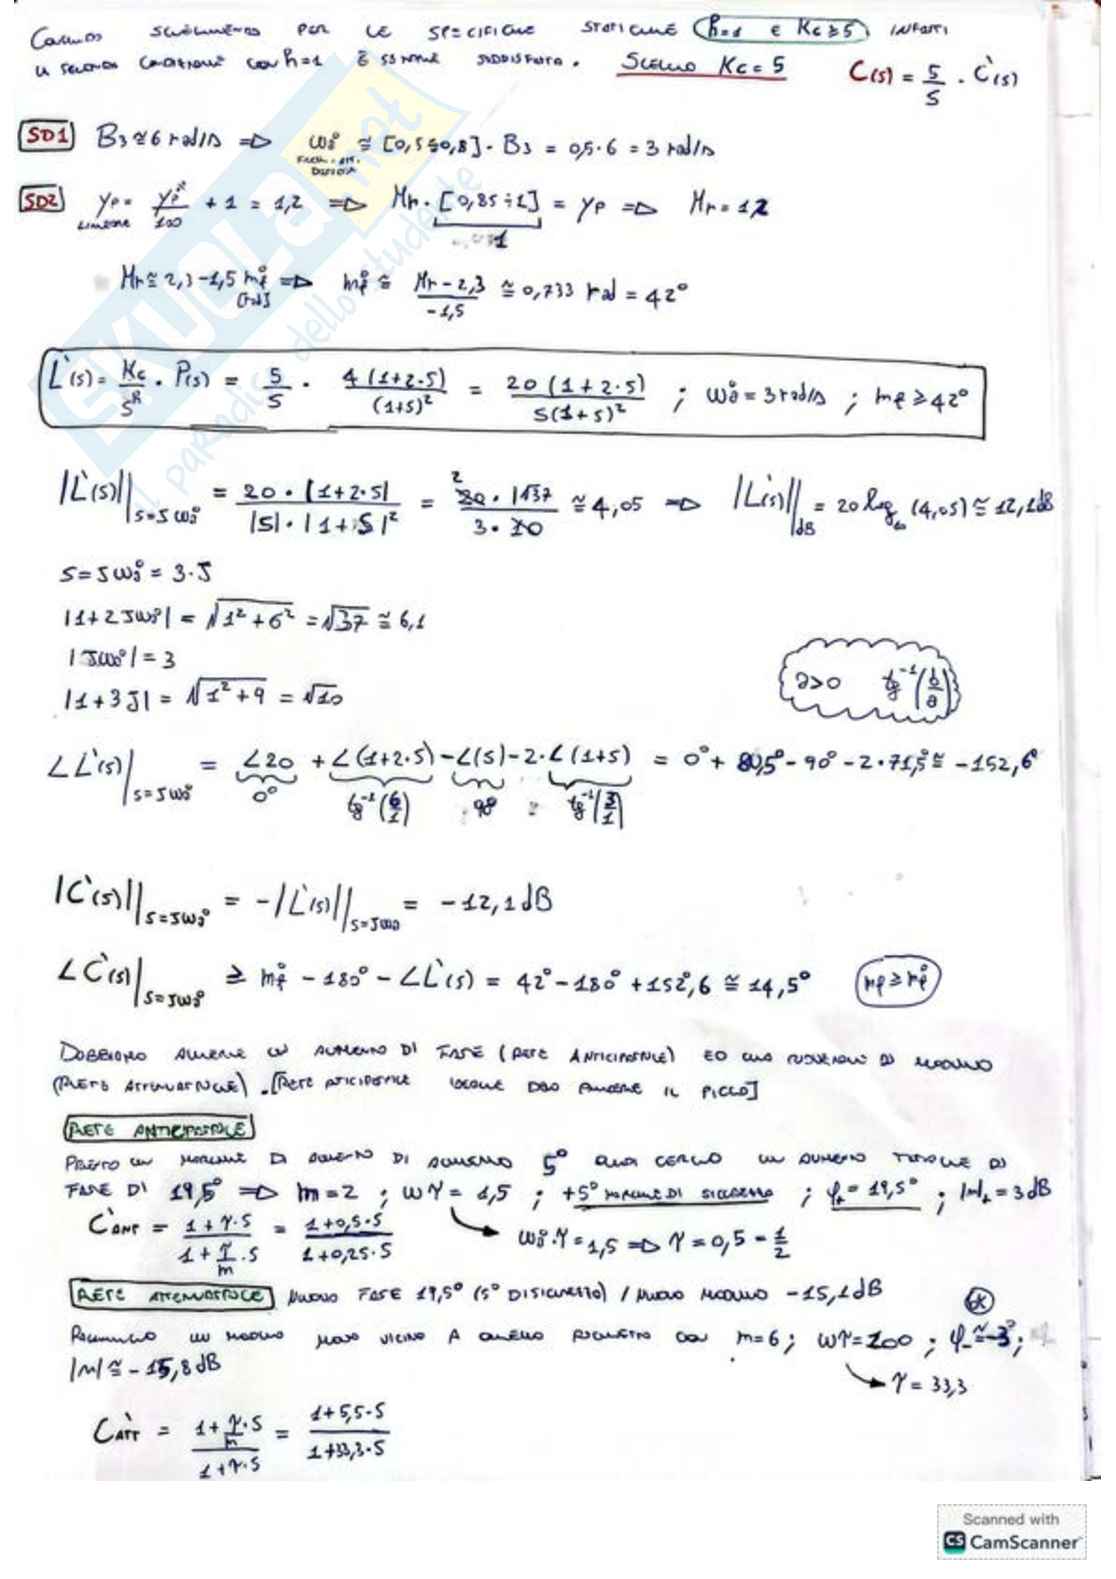 SCEGLIMENTO PER LE SPECIFICHE STATICHE h=1 E Kc≥5, INFATTI
LA SECONDA CONDIZIONE CON h=1 È SEMPRE SODDISFATTA. SCELGO Kc=5 C(s) = 5/s · C'(s)
SD1 B3 ≅ 6 rad/s => ω°a ≅ [0,5÷0,8]·B3 = 0,5·6 = 3 rad/s
SD2 yp = yp%/100 + 1 = 1,2 => Mr·[0,85÷1] = yp => Mr = 1,2
LINEARE
1
Mr ≅ 2,3-1,5 m°φ => m°φ ≅ Mr-2,3/-1,5 ≅ 0,733 rad = 42°
[rad]
L'(s) = Kc/s^h · P(s) = 5/s · 4(1+2·s)/(1+s)² = 20(1+2·s)/s(1+s)² ; ω°a = 3 rad/s ; mφ ≥ 42°
|L'(s)||s=jω°a = 20·|1+2·s|/|s|·|1+s|² = 2 20·|√37/3·10 ≅ 4,05 => |L'(s)||dB = 20 log10 (4,05) ≅ 12,1 dB
s = jω°a = 3·j
|1+2jω°a| = √1²+6² = √37 ≅ 6,1
|jωa°| = 3
|1+3j| = √1²+9 = √10
a>0 tg⁻¹(b/a)
∠L'(s)|s=jω°a = ∠20 + ∠(1+2·s) - ∠(s) - 2·∠(1+s) = 0° + 80,5° - 90° - 2·71,5° ≅ -152,6°
0° tg⁻¹(6/1) 90° tg⁻¹(3/1)
|C'(s)||s=jω°a = -|L'(s)||s=jωa = -12,1 dB
∠C'(s)|s=jω°a ≥ m°φ - 180° - ∠L'(s) = 42° - 180° + 152,6 ≅ 14,5° mφ ≥ m°φ
DOBBIAMO AVERE UN AUMENTO DI FASE (RETE ANTICIPATRICE) ED UNA RIDUZIONE DI MODULO
(RETE ATTENUATRICE). [RETE ATICIPATRICE DEVE AVERE IL PICCO]
RETE ANTICIPATRICE
PRESTO UN MARGINE DI AUMENTO 5° QUINDI CERCO UN AUMENTO TOTALE DI
FASE DI 19,5° => m=2 ; ωτ = 1,5 ; +5° MARGINE DI SICUREZZA ; φ+ = 19,5° ; |m|+ = 3 dB
C'ANT = 1+τ·s/1+τ/m·s = 1+0,5·s/1+0,25·s ω°a·τ = 1,5 => τ = 0,5 = 1/2
RETE ATTENUATRICE NUOVO FASE 19,5° (5° DI SICUREZZA) / NUOVO MODULO -15,1 dB
6x
UN MODULO MOLTO VICINO A QUELLO RICHIESTO CON m=6 ; ωτ=100 ; φ- ≅ -3° ;
|m| ≅ -15,8 dB τ = 33,3
C'ATT = 1+τ/m·s/1+τ·s = 1+5,5·s/1+33,3·s
SKUOLA.net
il paradiso dello studente
Scanned with
CS CamScanner